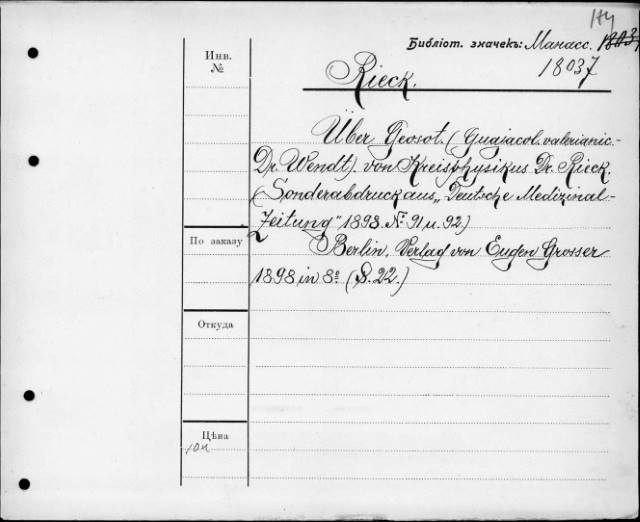 Ну
Библіот. значекъ: Манасс. 18037
18037
Инв.
№
Rieck.
Über Geosot. (Guajacol. valerianic.
Dr. Wendt). von Kreisphysikus Dr. Rieck.
(Sonderabdruck aus „Deutsche Medizinal-
Zeitung" 1898. № 91 u. 92.)
По заказу
Berlin, Verlag von Eugen Grosser
1898 in 8º (S. 22.)
Откуда
Цѣна